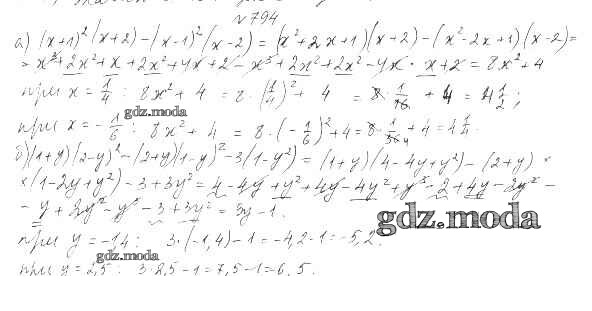 №794
а) (x+1)²(x+2)-(x-1)²(x-2) = (x²+2x+1)(x+2)-(x²-2x+1)(x-2)=
= x³+2x²+x+2x²+4x+2-x³+2x²+2x²-4x-x+2=8x²+4
при x = 1/4 : 8x²+4 = 8·(1/4)²+4 = 8·1/16+4 = 4 1/2;
gdz.moda
при x = -1/6 : 8x²+4 = 8·(-1/6)²+4 = 8·1/36+4 =
б) (1+y)(2-y)²-(2+y)(1-y)²-3(1-y²) = (1+y)(4-4y+y²)-(2+y)×
×(1-2y+y²)-3+3y² = 4-4y+y²+4y-4y²+y³-2+4y-2y²-
-y+2y²-y³-3+3y²=3y-1.
gdz.moda
при y = -1,4: 3·(-1,4)-1=-4,2-1=-5,2.
gdz.moda
при y = 2,5: 3·2,5-1=7,5-1=6,5.